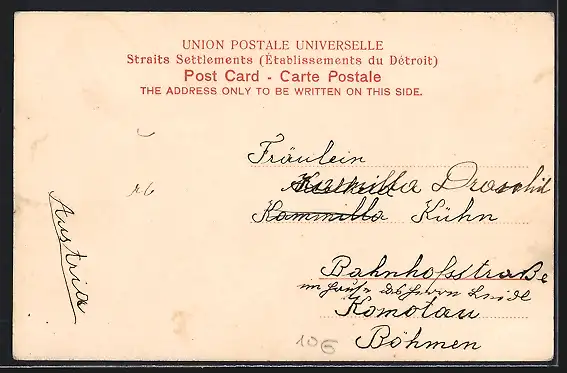 UNION POSTALE UNIVERSELLE
Straits Settlements (Établissements du Détroit)
Post Card - Carte Postale
THE ADDRESS ONLY TO BE WRITTEN ON THIS SIDE.
Fräulein
Kammilla
Kammilla Kühn
Bahnhofsstraße
im Hause des Herrn
Komotau
Böhmen
Austria
10€